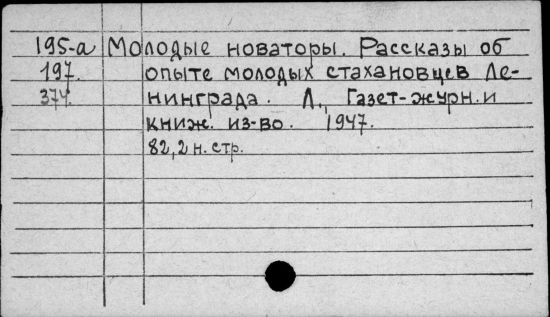 195-а Молодые новаторы. Рассказы об
197. опыте молодых стахановцев Ле-
374. нинграда. Л., Газет-журн. и
книж. из-во. 1947.
82, 2 н. стр.